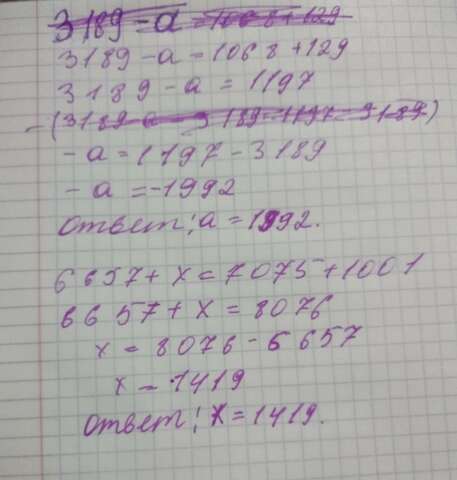 3189 - a = 1068 + 129
3189 - a = 1068 + 129
3189 - a = 1197
-(3189 - a - 3189 = 1197 - 3189)
- a = 1197 - 3189
- a = -1992
ответ: a = 1992.
6657 + x = 7075 + 1001
6657 + x = 8076
x = 8076 - 6657
x = 1419
ответ: x = 1419.